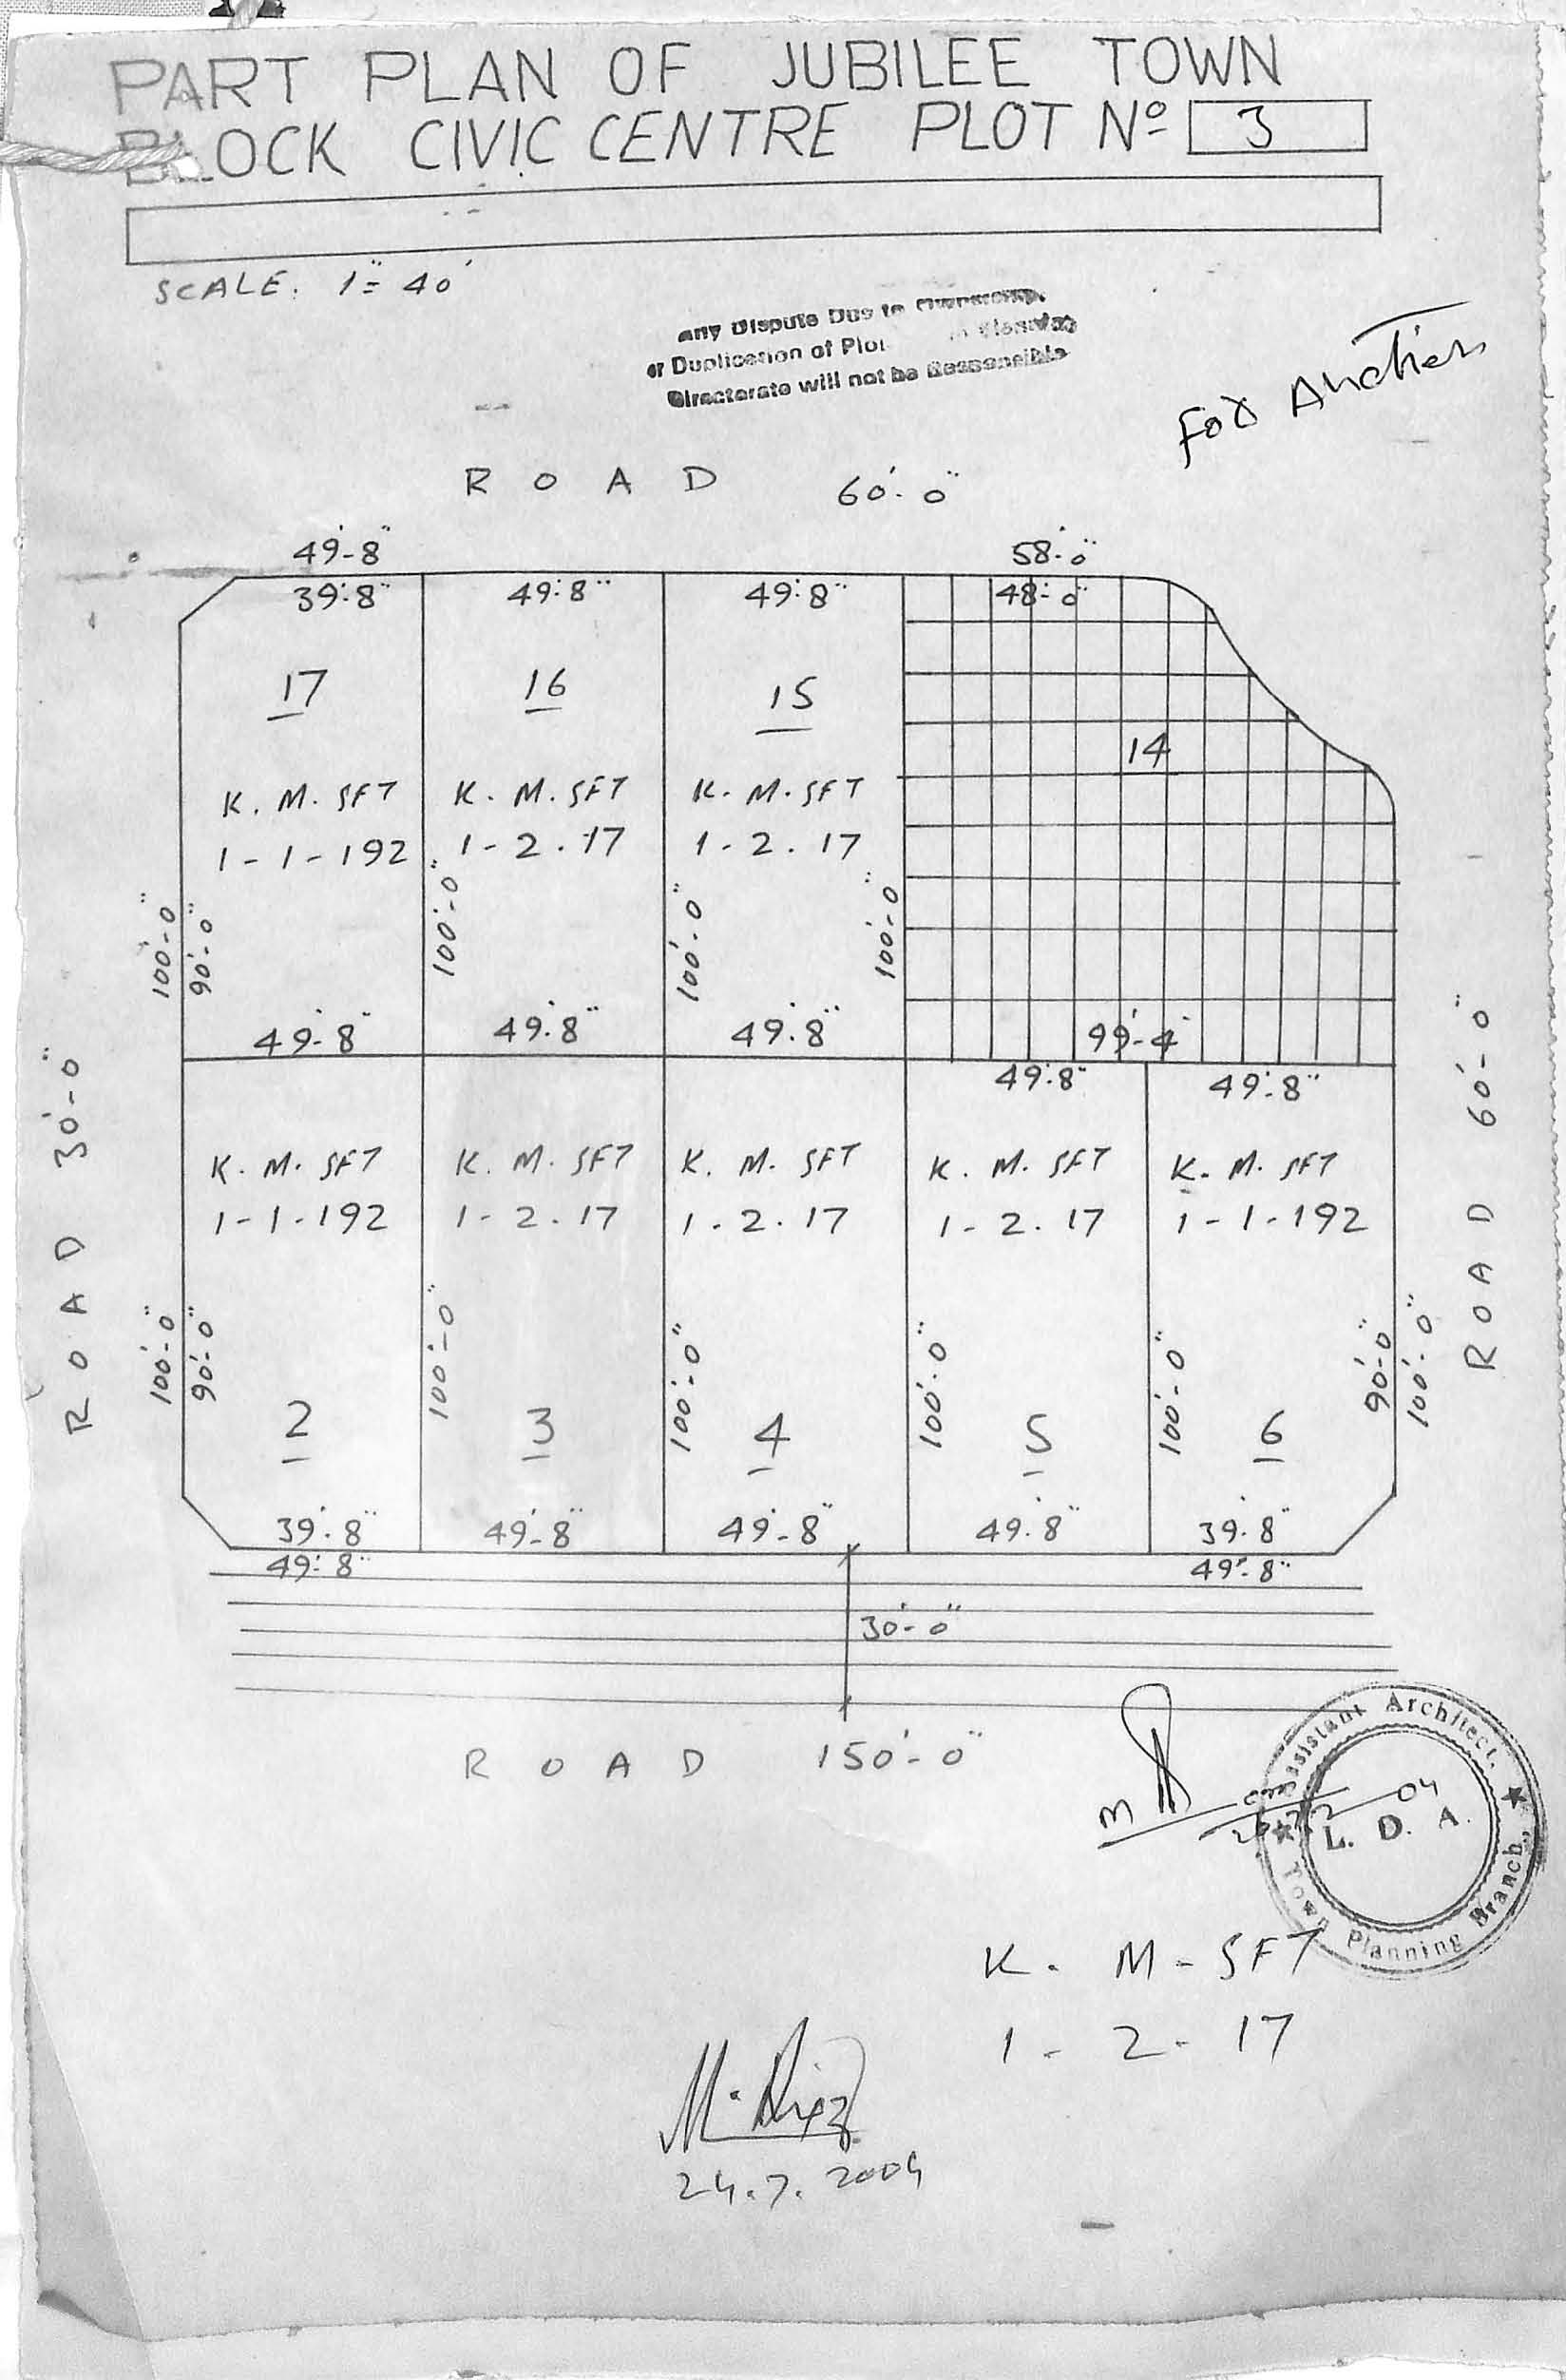 PART PLAN OF JUBILEE TOWN
BLOCK CIVIC CENTRE PLOT Nº 3
SCALE: 1"= 40'
any Dispute Due to
or Duplication of Plot in Planning
Directorate will not be Responsible
For Auction
ROAD 60'-0"
49'-8" 58'-0"
39'-8" 49'-8" 49'-8" 48'-0"
17 16 15 14
K. M. SFT K. M. SFT K. M. SFT
1-1-192 1-2.17 1-2.17
100'-0" 90'-0" 100'-0" 100'-0" 100'-0"
49'-8" 49'-8" 49'-8" 99'-4"
49'-8" 49'-8"
ROAD 30'-0"
ROAD 60'-0"
K. M. SFT K. M. SFT K. M. SFT K. M. SFT K. M. SFT
1-1-192 1-2.17 1.2.17 1-2.17 1-1-192
100'-0" 90'-0" 100'-0" 100'-0" 100'-0" 100'-0" 90'-0" 100'-0"
2 3 4 5 6
39'-8" 49'-8" 49'-8" 49'-8" 39'-8"
49'-8" 49'-8"
30'-0"
ROAD 150'-0"
Assistant Architect.
L. D. A.
Town Planning Branch,
04
K. M - SFT
1 - 2 - 17
24.7.2004